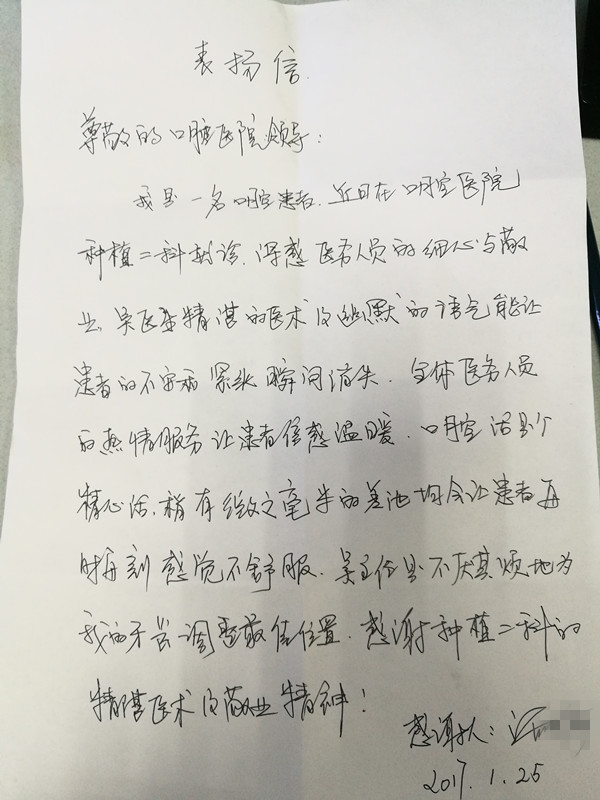 表扬信.
尊敬的口腔医院领导:
我是一名口腔患者.近日在口腔医院
种植二科就诊.深感医务人员的细心与敬
业.吴医生精湛的医术及幽默的语气能让
患者的不安和紧张瞬间消失.全体医务人员
的热情服务让患者倍感温暖.口腔活是个
精心活.稍有丝之毫牛的差池均会让患者每
时每刻感觉不舒服.吴主任是不厌其烦地为
我的牙齿调整最佳位置.感谢种植二科的
精湛医术及敬业精神!
感谢人:
2017.1.25